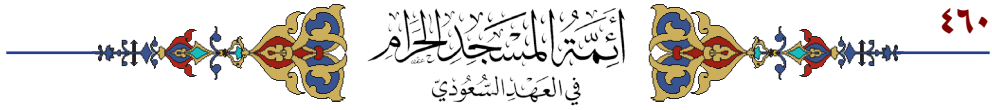 ٤٦٠
أَئِمَّةُ الْمَسْجِدِ الْحَرَامِ
فِي الْعَهْدِ السُّعُودِيِّ